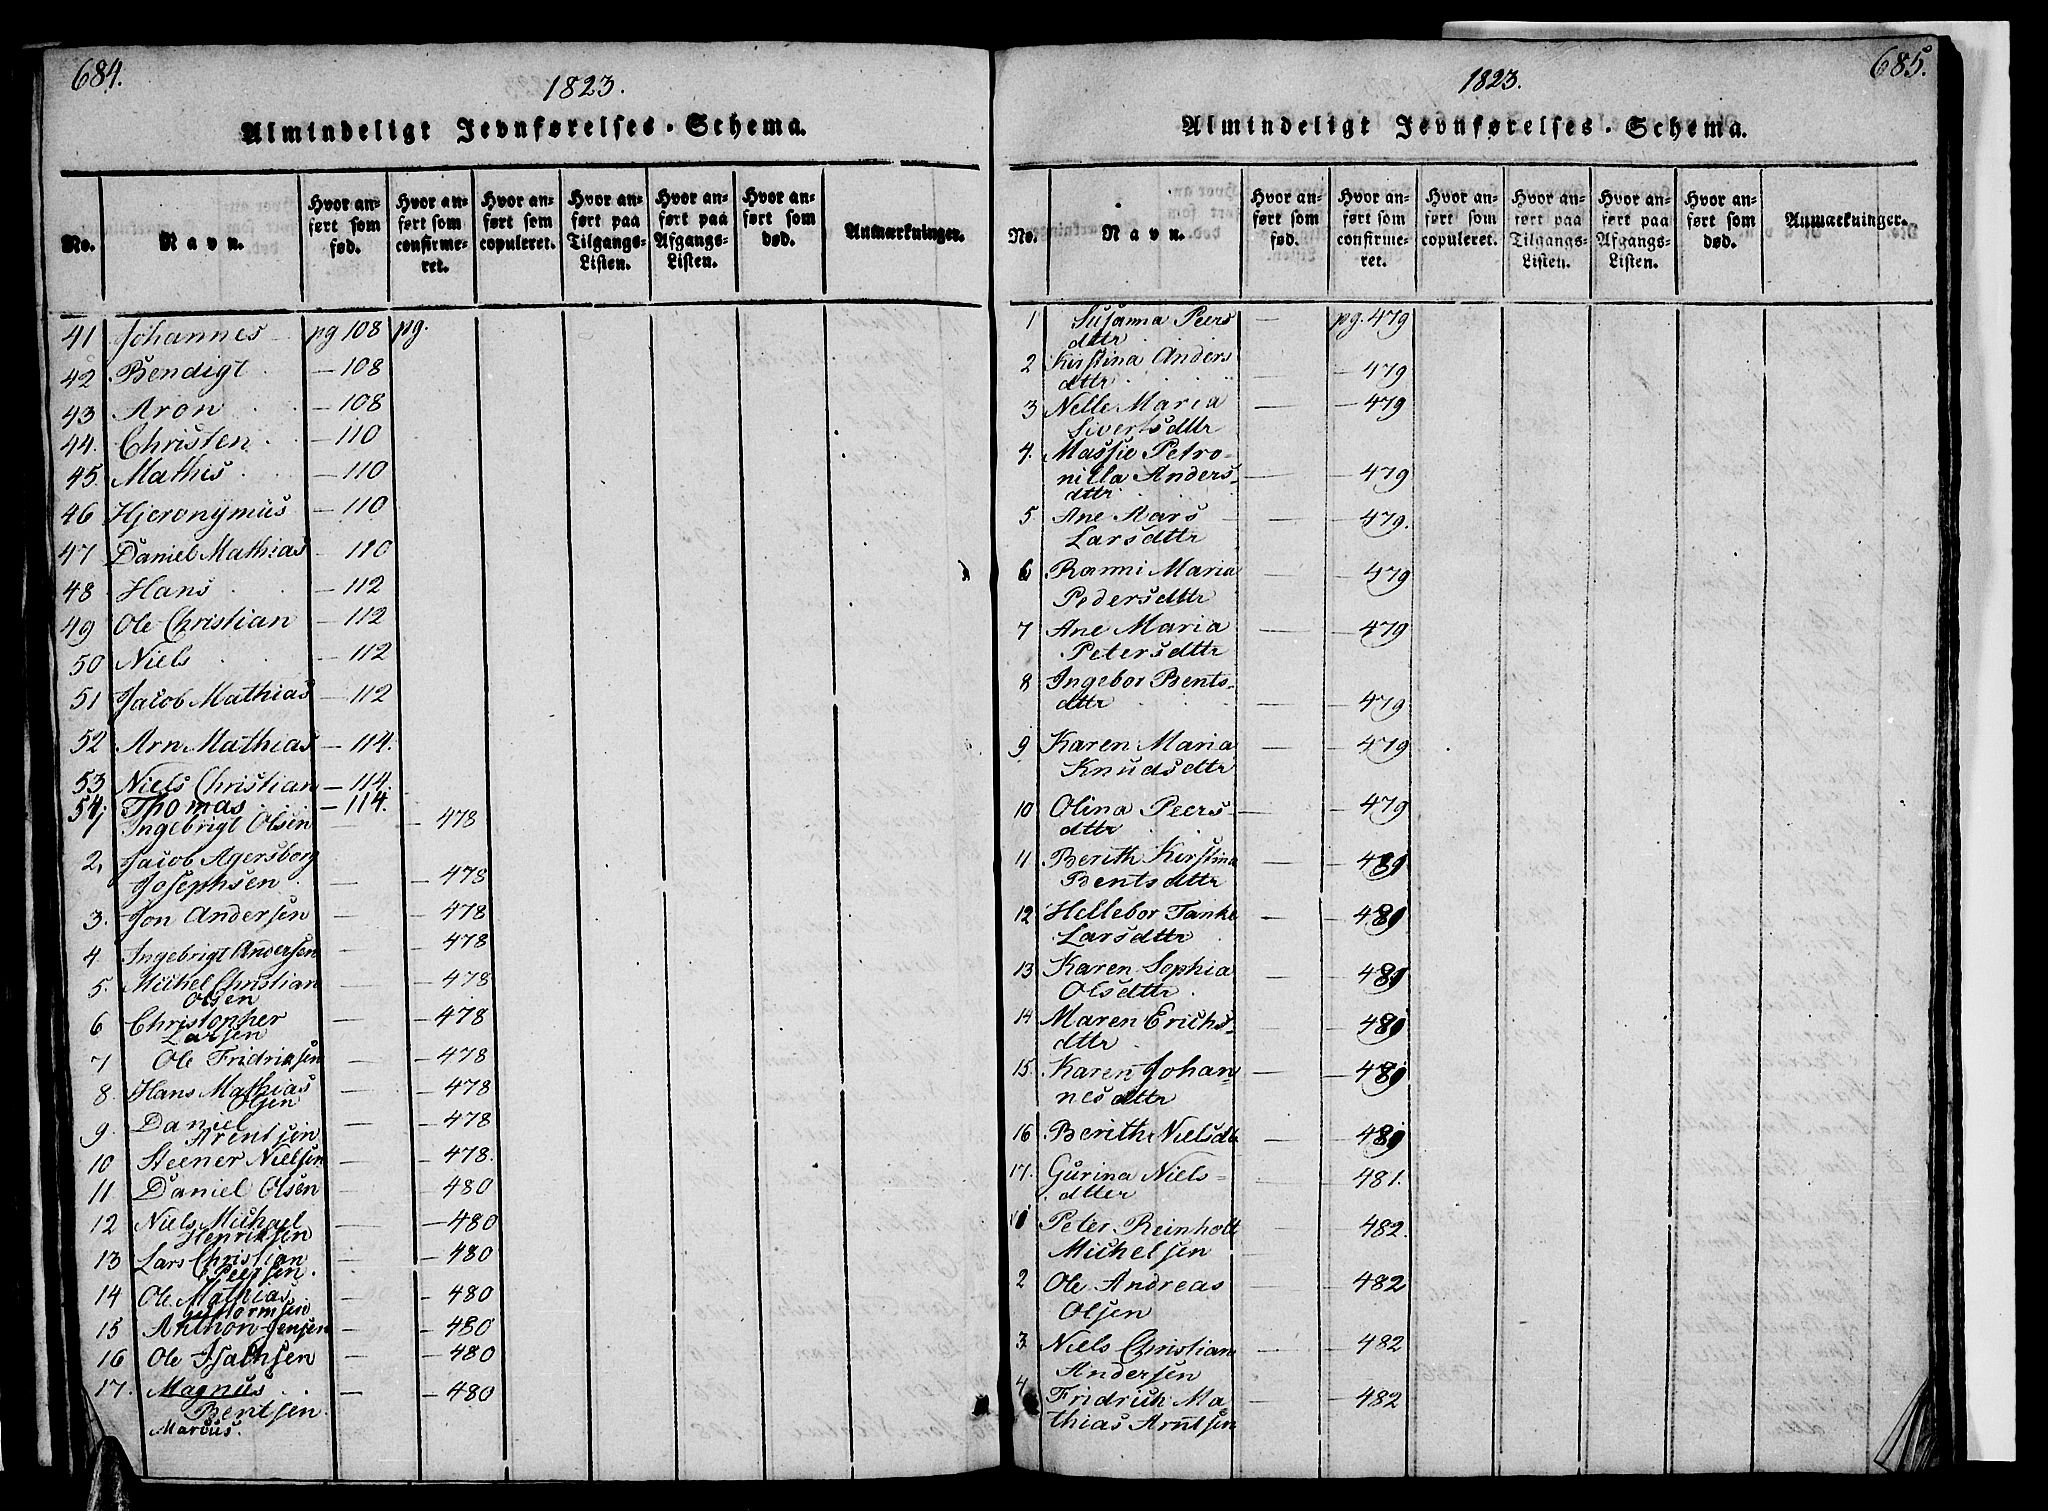 684.
1823.
Almindeligt Jevnførelses-Schema.
No. Navn. Hvor anført som fød. Hvor anført som confirmeret. Hvor anført som copuleret. Hvor anført paa Tilgangs-Listen. Hvor anført paa Afgangs-Listen. Hvor anført som død. Anmærkninger.
41 Johannes pg 108 pg.
42 Bendigt — 108
43 Aron — 108
44. Christen — 110
45 Mathis — 110
46 Hjeronymus — 110
47 Daniel Mathias — 110
48 Hans — 112
49 Ole Christian — 112
50 Niels — 112
51 Jacob Mathias — 112
52 Arn Mathias — 114.
53 Niels Christian — 114.
54. Thomas — 114.
1 Ingebrigt Olsen — — 478
2. Jacob Agersborg
Josephsen — — 478
3. Jon Andersen — — 478
4 Ingebrigt Andersen — — 478
5. Michel Christian — — 478
Olsen
6 Christopher — — 478
Larsen
7 Ole Fridriksen — — 478
8. Hans Mathias — — 478
Olsen
9. Daniel — — 478
Arentsen
10 Steener Nielsen — — 478.
11 Daniel Olsen — — 480
12 Niels Michael — — 480
Henriksen
13 Lars Christian — — 480
Peersen.
14 Ole Mathias — — 480
Guttormsen
15 Anthon Jensen — — 480
16 Ole Isachsen — — 480
17. Magnus — — 480
Bentsen.
Marcus.
685.
1823.
Almindeligt Jevnførelses-Schema.
No. Navn. Hvor anført som fød. Hvor anført som confirmeret. Hvor anført som copuleret. Hvor anført paa Tilgangs-Listen. Hvor anført paa Afgangs-Listen. Hvor anført som død. Anmærkninger.
1 Susanna Peers — pg. 479
dttr
2 Kirstina Anders — — 479
dttr
3 Nelle Maria — — 479
Sivertsdttr
4. Massie Petro-
nilla Anders- — — 479
dttr
5 Ane Mars — — 479.
Larsdttr
6 Ranni Maria — — 479
Pedersdttr
7 Ane Maria — — 479
Petersdttr
8 Ingebor Bents-
dttr — — 479
9 Karen Maria — — 479
Knudsdttr
10 Olina Peers- — — 479
dttr
11 Berith Kirstina — — 481
Bentsdttr
12 Hellebor Tanke — — 481
Larsdttr
13 Karen Sophia — — 481
Olsdttr
14 Maren Erichs- — — 481
dttr
15. Karen Johan- — — 481
nesdttr
16 Berith Nielsdt — — 481
17. Gurina Niels- — — 481.
dtter
1 Peter Reinholt — — 482.
Michelsen
2 Ole Andreas — — 482
Olsen
3. Niels Christian — — 482
Andersen
4 Fridrich Ma- — — 482
thias Arntsen